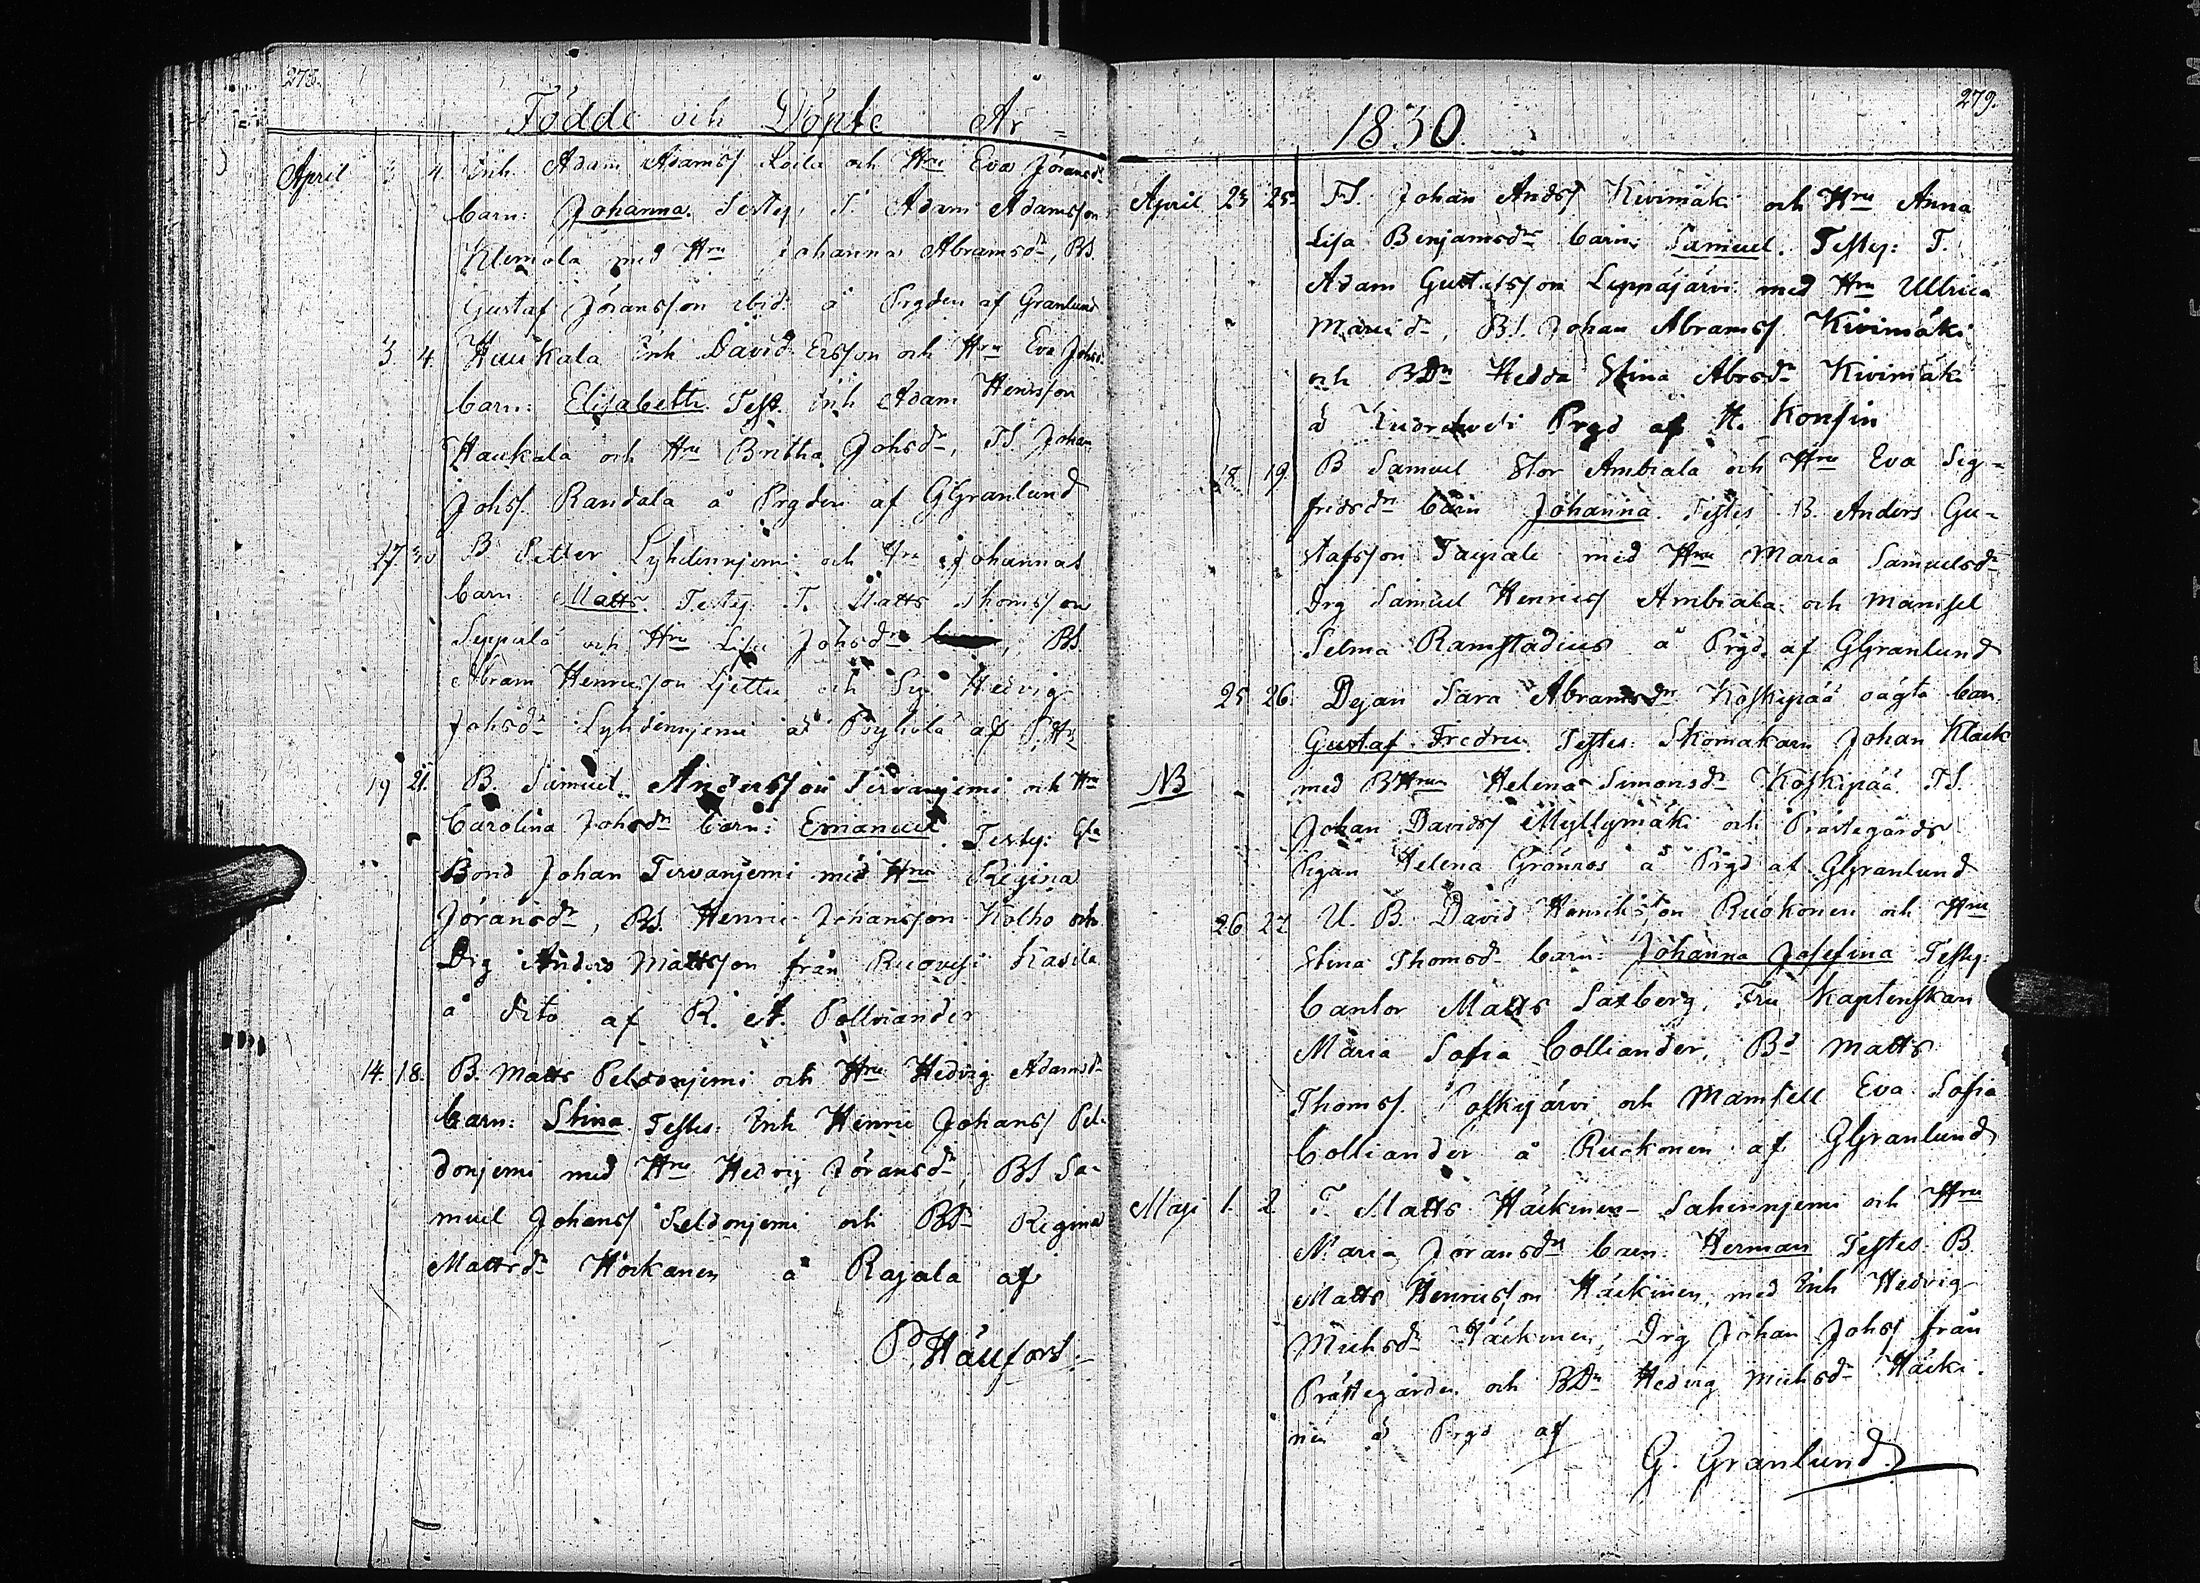 278.
Födde och Döpte År =
April 3 4 Inh Adam Adamsſ Koila och Hru Eva Jöransdr
barn: Johanna. Testes, T. Adam Adamsſon
Klemola med Hru Johanna Abramsdr, BS.
Gustaf Jöransſon ibid: å Prgden af Granlund
3 4. Haukala Inh David Ersſon och Hru Eva Johsdr
barn: Elisabeth. Teſt. Inh Adam Henrsſon
Haukala och Hru Britha Johsdr, TS. Johan
Johsſ. Randala å Prgden af GGranlund
27 30 B Petter Lyhdennjemi och Hru Johannas
barn Matts. Testes. T. Matts Thomsſon
Seppälä och Hru Lisa Johsdr, BS.
Abram Henricsſon och Hedvig
Johsdr Lyhdennjemi å Pöyhölä af PHrs
19 21. B. Samuel Andersſon Tervanjemi och Hru
Carolina Johsdr barn: Emanuel. Testes: Gla
Bond Johan Tervanjemi med Hru Regina
Jöransdr, BS. Henric Johansſon Kolho och
Drg Anders Mattsſon från Ruovesi Kasila
å dito af R. et A. Polviander
14. 18. B. Matts Peldonjemi och Hru Hedvig Adamsdr
barn: Stina. Teſtes: Inh Henric Johansſ Pel-
donjemi med Hru Hedvig Jöransdr, BS Sa-
muel Johansſ Peldonjemi och BDr Regina
Mattsdr Höckanen å Rajala af
P Häuforſ.
279.
1830.
April 23 25 TS. Johan Andsſ Kivimäki och Hru Anna
Lisa Benjamsdrs barn: Samuel. Teſtes: T.
Adam Gustafsſon Leppäjärvi med Hru Ullrica
Mariedr, BS. Johan Abramsſ Kivimäki
och BDr Hedda Stina Absdr Kivimäki
å Prgd af H. Konſin
18 19. B Samuel Stor Ambiala och Hru Eva Sig=
fridsdrs barn Johanna. Teſtes B. Anders Gu=
stafsſon Taipale med Hru Maria Samuelsdr
Drg Samuel Henricsſ Ambiala och Mamſel
Selma Ramſtadius å Prgd. af GGranlund
25 26. Pigan Sara Abramsdr Koſkipää oägta barn
Gustaf Fredric. Teſtes: Skomakarn Johan Klack
NB med BHrun Helena Simonsdr Koſkipää TS.
Johan Davidsſ Myllymäki och Präſtegårds
Pigan Helena Grönroos å Prgd af GGranlund
26 27 U. B. David Henrikſson Ruokonen och Hru
Stina Thomsdr barn: Johanna Joſefina Teſtes:
Cantor Matts Saxberg, Fru Kaptenſkan
Maria Sofia Colliander, Bd Matts
Thomsſ. Poſkijärvi och Mamsell Eva Sofia
Colliander å Ruokonen af GGranlund
Maji 1. 2 T. Matts Häckinen Sahinnjemi och Hru
Maria Jöransdrs barn. Herman Teſtes: B.
Matts Henricsſon Häckinen, med Inh Hedvig
Michsdr Häckinen, Drg Johan Johsſ från
Präſtegården och BDr Hedvig Michsdr Häcki-
nen å Prgd af
G. Granlund.